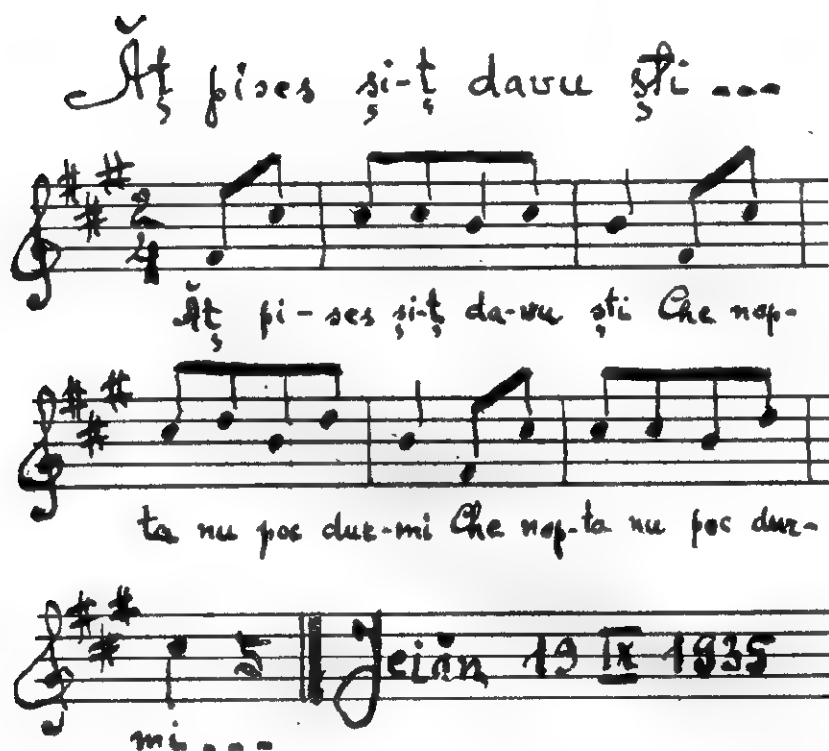 Ăț pises și-ț davu ști ...
2
4
Ăț pi-ses și-ț da-vu ști Che nop-
ta nu poc dur-mi Che nop-ta nu poc dur-
mi...
Jeiăn 19 IX 1935